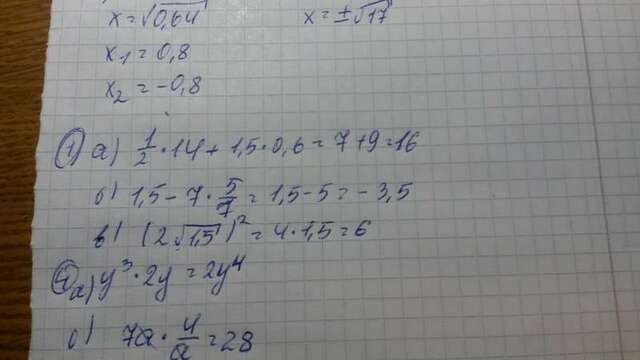 x = √0,64 x = ±√17
x₁ = 0,8
x₂ = -0,8
① а) 1/2 · 14 + 1,5 · 0,6 = 7 + 9 = 16
б) 1,5 - 7 · 5/7 = 1,5 - 5 = - 3,5
в) (2√1,5)² = 4 · 1,5 = 6
④ а) y³ · 2y = 2y⁴
б) 7a · 4/a = 28